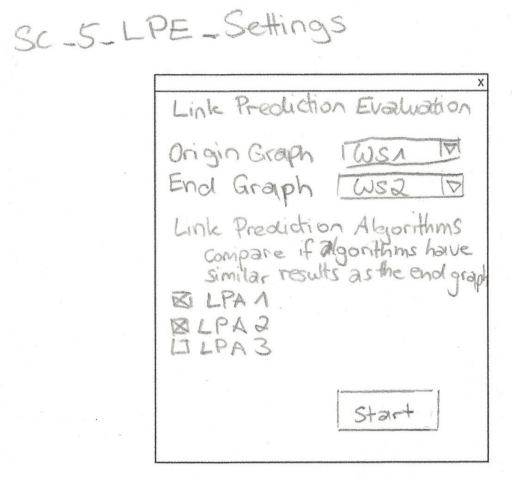 Sc_5_LPE_Settings
x
Link Prediction Evaluation
Origin Graph WS1
End Graph WS2
Link Prediction Algorithms
compare if algorithms have
similar results as the end graph
LPA 1
LPA 2
LPA 3
Start